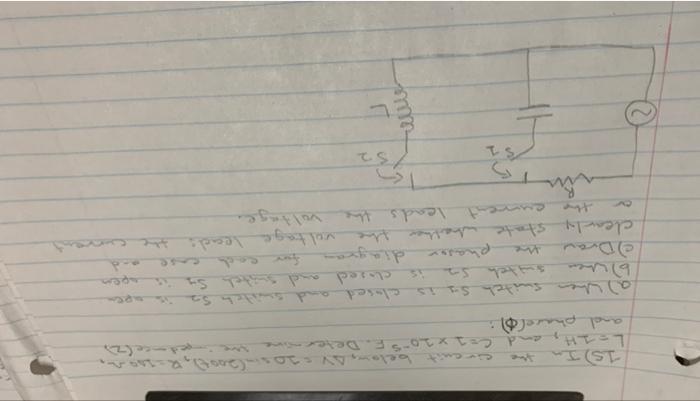 15) In the circuit below, ΔV = 20 sin(200t), R = 200 Ω,
L = 1H, and C = 1 x 10⁻⁵ F. Determine the impedance (Z)
and phase (ϕ):
a) When switch S1 is closed and switch S2 is open
b) When switch S2 is closed and switch S1 is open
c) Draw the phasor diagram for each case and
clearly state whether the voltage leads the current
or the current leads the voltage.
R
S1
S2
L